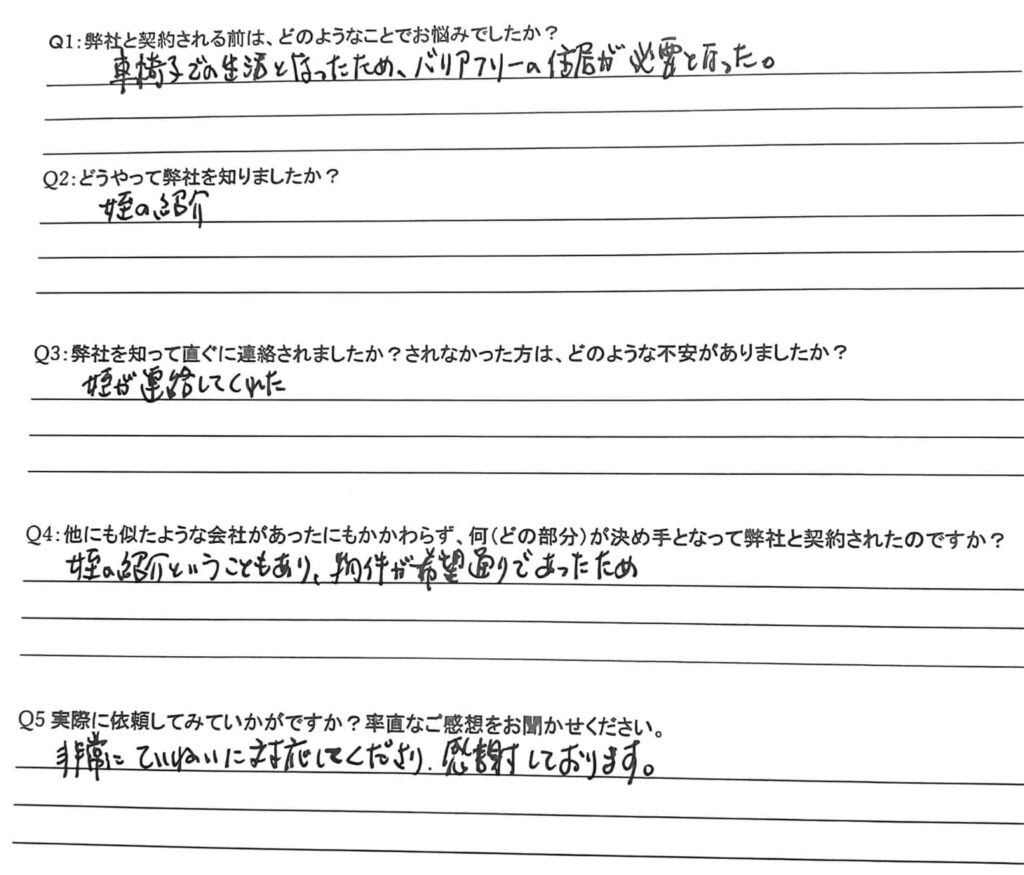 Q1:弊社と契約される前は、どのようなことでお悩みでしたか？
車椅子での生活となったため、バリアフリーの住居が必要となった。
Q2:どうやって弊社を知りましたか？
姪の紹介
Q3:弊社を知って直ぐに連絡されましたか？されなかった方は、どのような不安がありましたか？
姪が連絡してくれた
Q4:他にも似たような会社があったにもかかわらず、何(どの部分)が決め手となって弊社と契約されたのですか？
姪の紹介ということもあり、物件が希望通りであったため
Q5 実際に依頼してみていかがですか？率直なご感想をお聞かせください。
非常にていねいに対応してくださり、感謝しております。